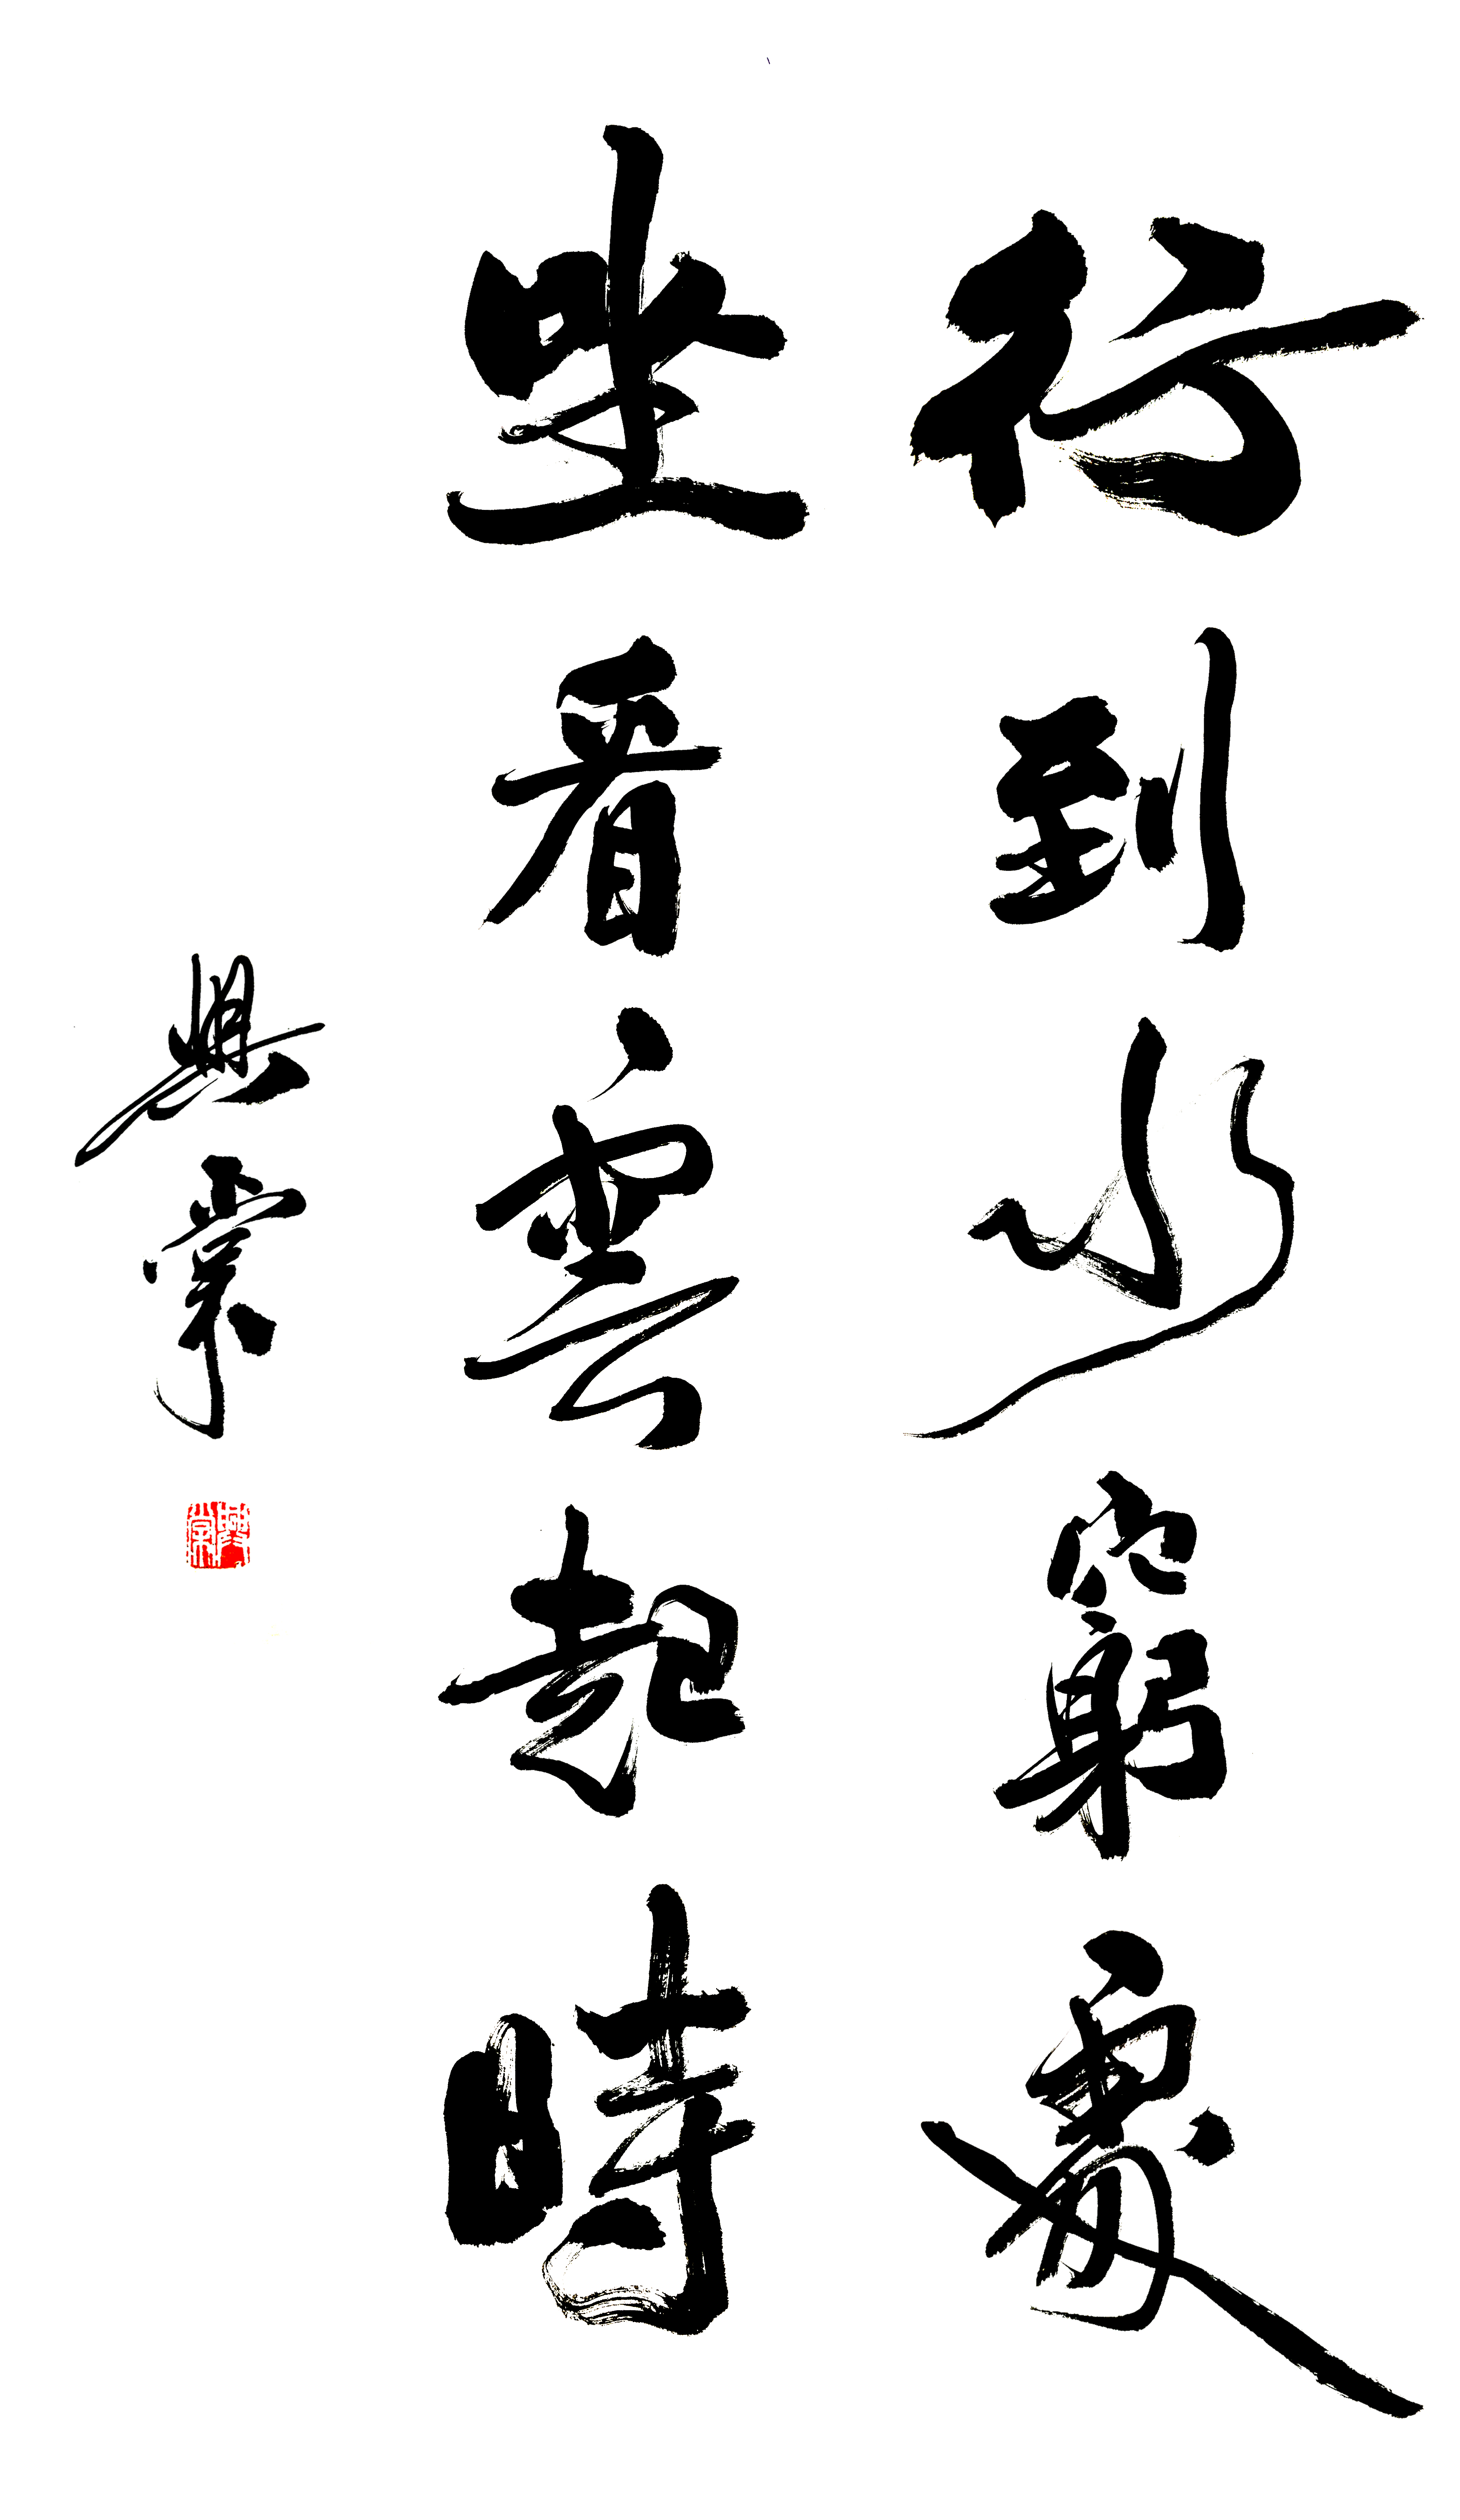 行到水窮處
坐看雲起時
興